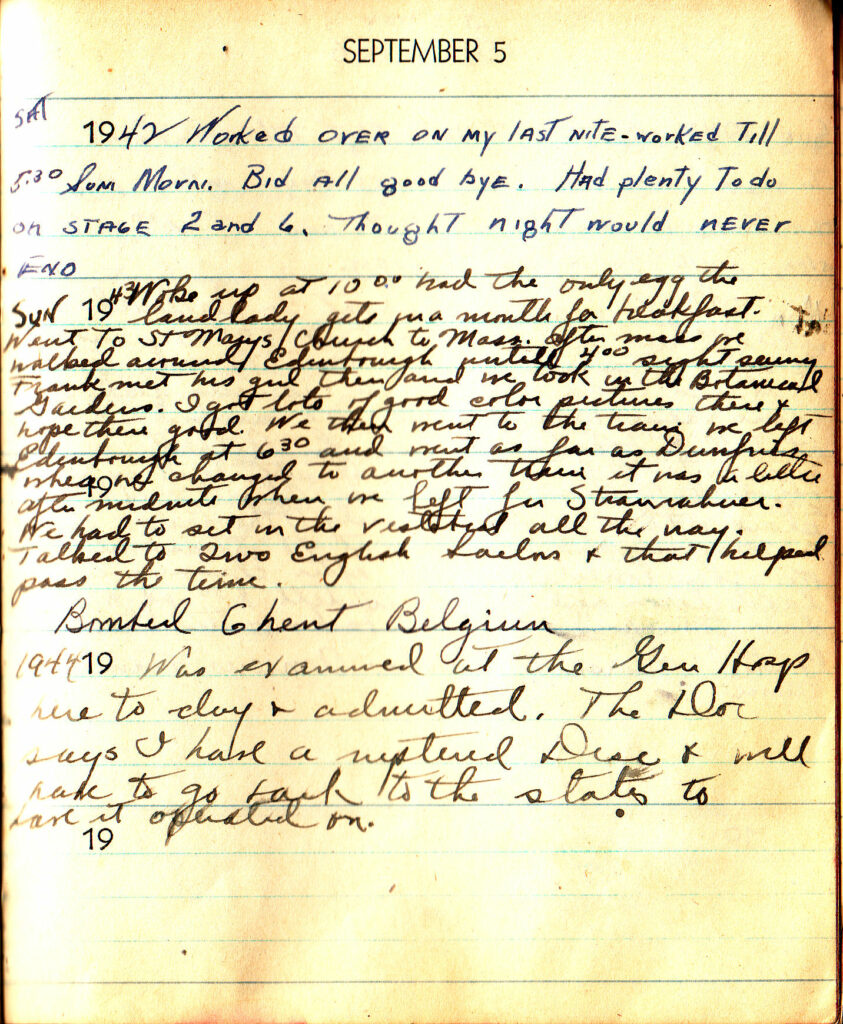 SEPTEMBER 5
SAT
1942 Worked OVER ON my last NITE-worked Till
5:30 Sun Morn. Bid All good bye. Had plenty To do
on STAGE 2 and 6. Thought night would NEVER
END
SUN 1943 Woke up at 10 00 had the only egg the
landlady gets in a month for breakfast.
Went To St Marys Church to Mass. After mass we
walked around Edinburgh untill 4 00 sight seeing
Frank met his girl then and we took in the Botanical
Gardens. I got lots of good color pictures there &
hope there good. We then went to the train we left
Edinburgh at 6 30 and went as far as Dumfries
where we changed to another train it was a little
19
after midnite when we left for
We had to set in the all the way.
Talked to two English sailors & that helped
pass the time.
Bombed Ghent Belgium
1944 19 Was examined at the Gen Hosp
here to day & admitted. The Doc
says I have a Disc & will
have to go back to the states to
have it operated on.
19